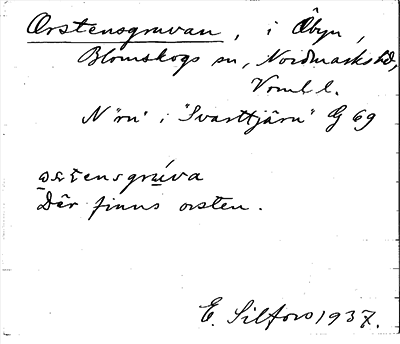 Orstensgruvan, i Åbyn,
Blomskogs sn, Nordmarks hd,
Värml. l.
N "rn" i "Svarttjärn" G 69
ɷstensgrúva
Där finns orsten.
E. Silfors 1937.